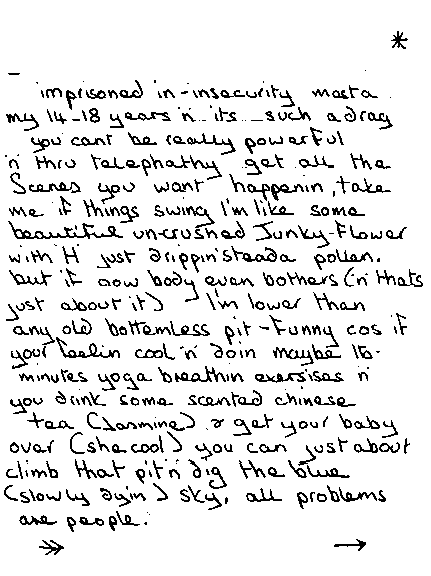 imprisoned in-insecurity mosta
my 14-18 years 'n its such a drag
you cant be really powerful
'n thru telephathy get all the
Scenes you want happenin, take
me if things swing I'm like some
beautiful un-crushed Junky-Flower
with H just drippin'steada pollen.
but if now body even bothers ('n' thats
just about it) I'm lower than
any old bottemless pit - Funny cos if
your feelin cool 'n' doin maybe 16-
minutes yoga breathin exersises 'n
you drink some scented chinese
tea (Jasmine) & get your baby
over (she cool) you can just about
climb that pit 'n dig the blue
(slowly dyin) sky, all problems
are people.